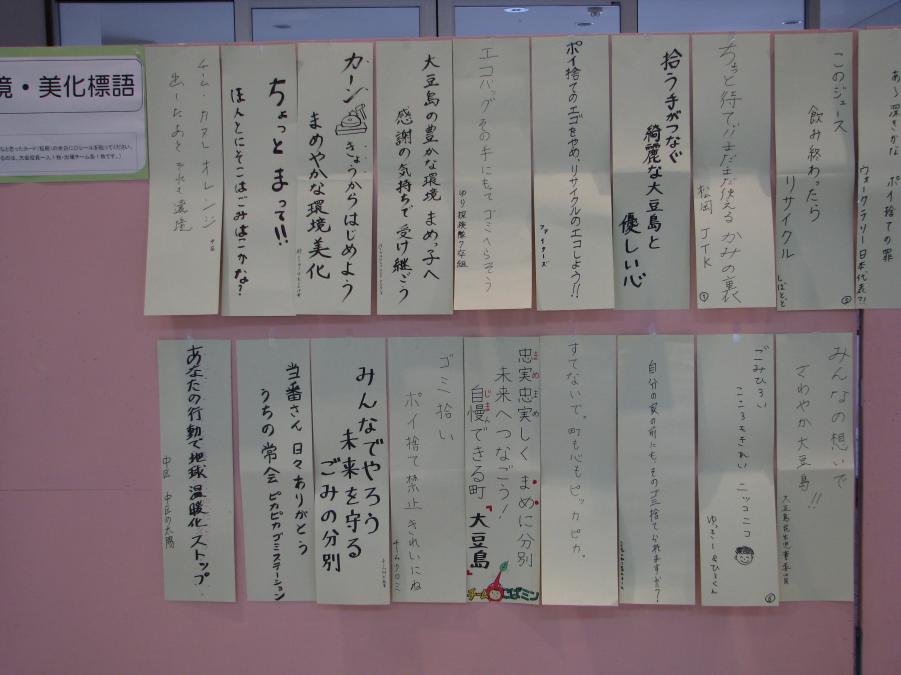 境・美化標語
ポイ捨ての罪
ウォークラリー日本代表?!
このジュース
飲み終わったら
リサイクル
しばとっと
ちょっと待て!!まだまだ使えるかみの裏
松岡 JTK
①
拾う手がつなぐ
綺麗な大豆島と
優しい心
ポイ捨てのエゴをやめ、リサイクルのエコしよう!!
ファイターズ
エコバッグその手にもてゴミへらそう
大豆島の豊かな環境 まめっ子へ
感謝の気持ちで受け継ごう
カーン きょうからはじめよう
まめやかな環境美化
ちょっとまって!!
ほんとにそこはごみばこかな?
チーム・カヌレ オレンジ
出したあと
みんなの想いで
さわやか大豆島!!
大豆島民生児童委員
ごみひろい
こころもきれい ニッコニコ
ゆっきーとひろくん
自分の家の前にも、そのゴミ捨てられますか?
すてないで。町も心もピッカピカ。
忠実忠実しく まめに分別
まめ まめ
未来へつなごう!
自慢できる町『大豆島』
じまん
チームしばミン
ゴミ拾い
ポイ捨て禁止 きれいにね
みんなでやろう
未来を守る
ごみの分別
当番さん 日々ありがとう
うちの常会 ピカピカゴミステーション
あなたの行動で地球温暖化ストップ
中区 中区の太陽